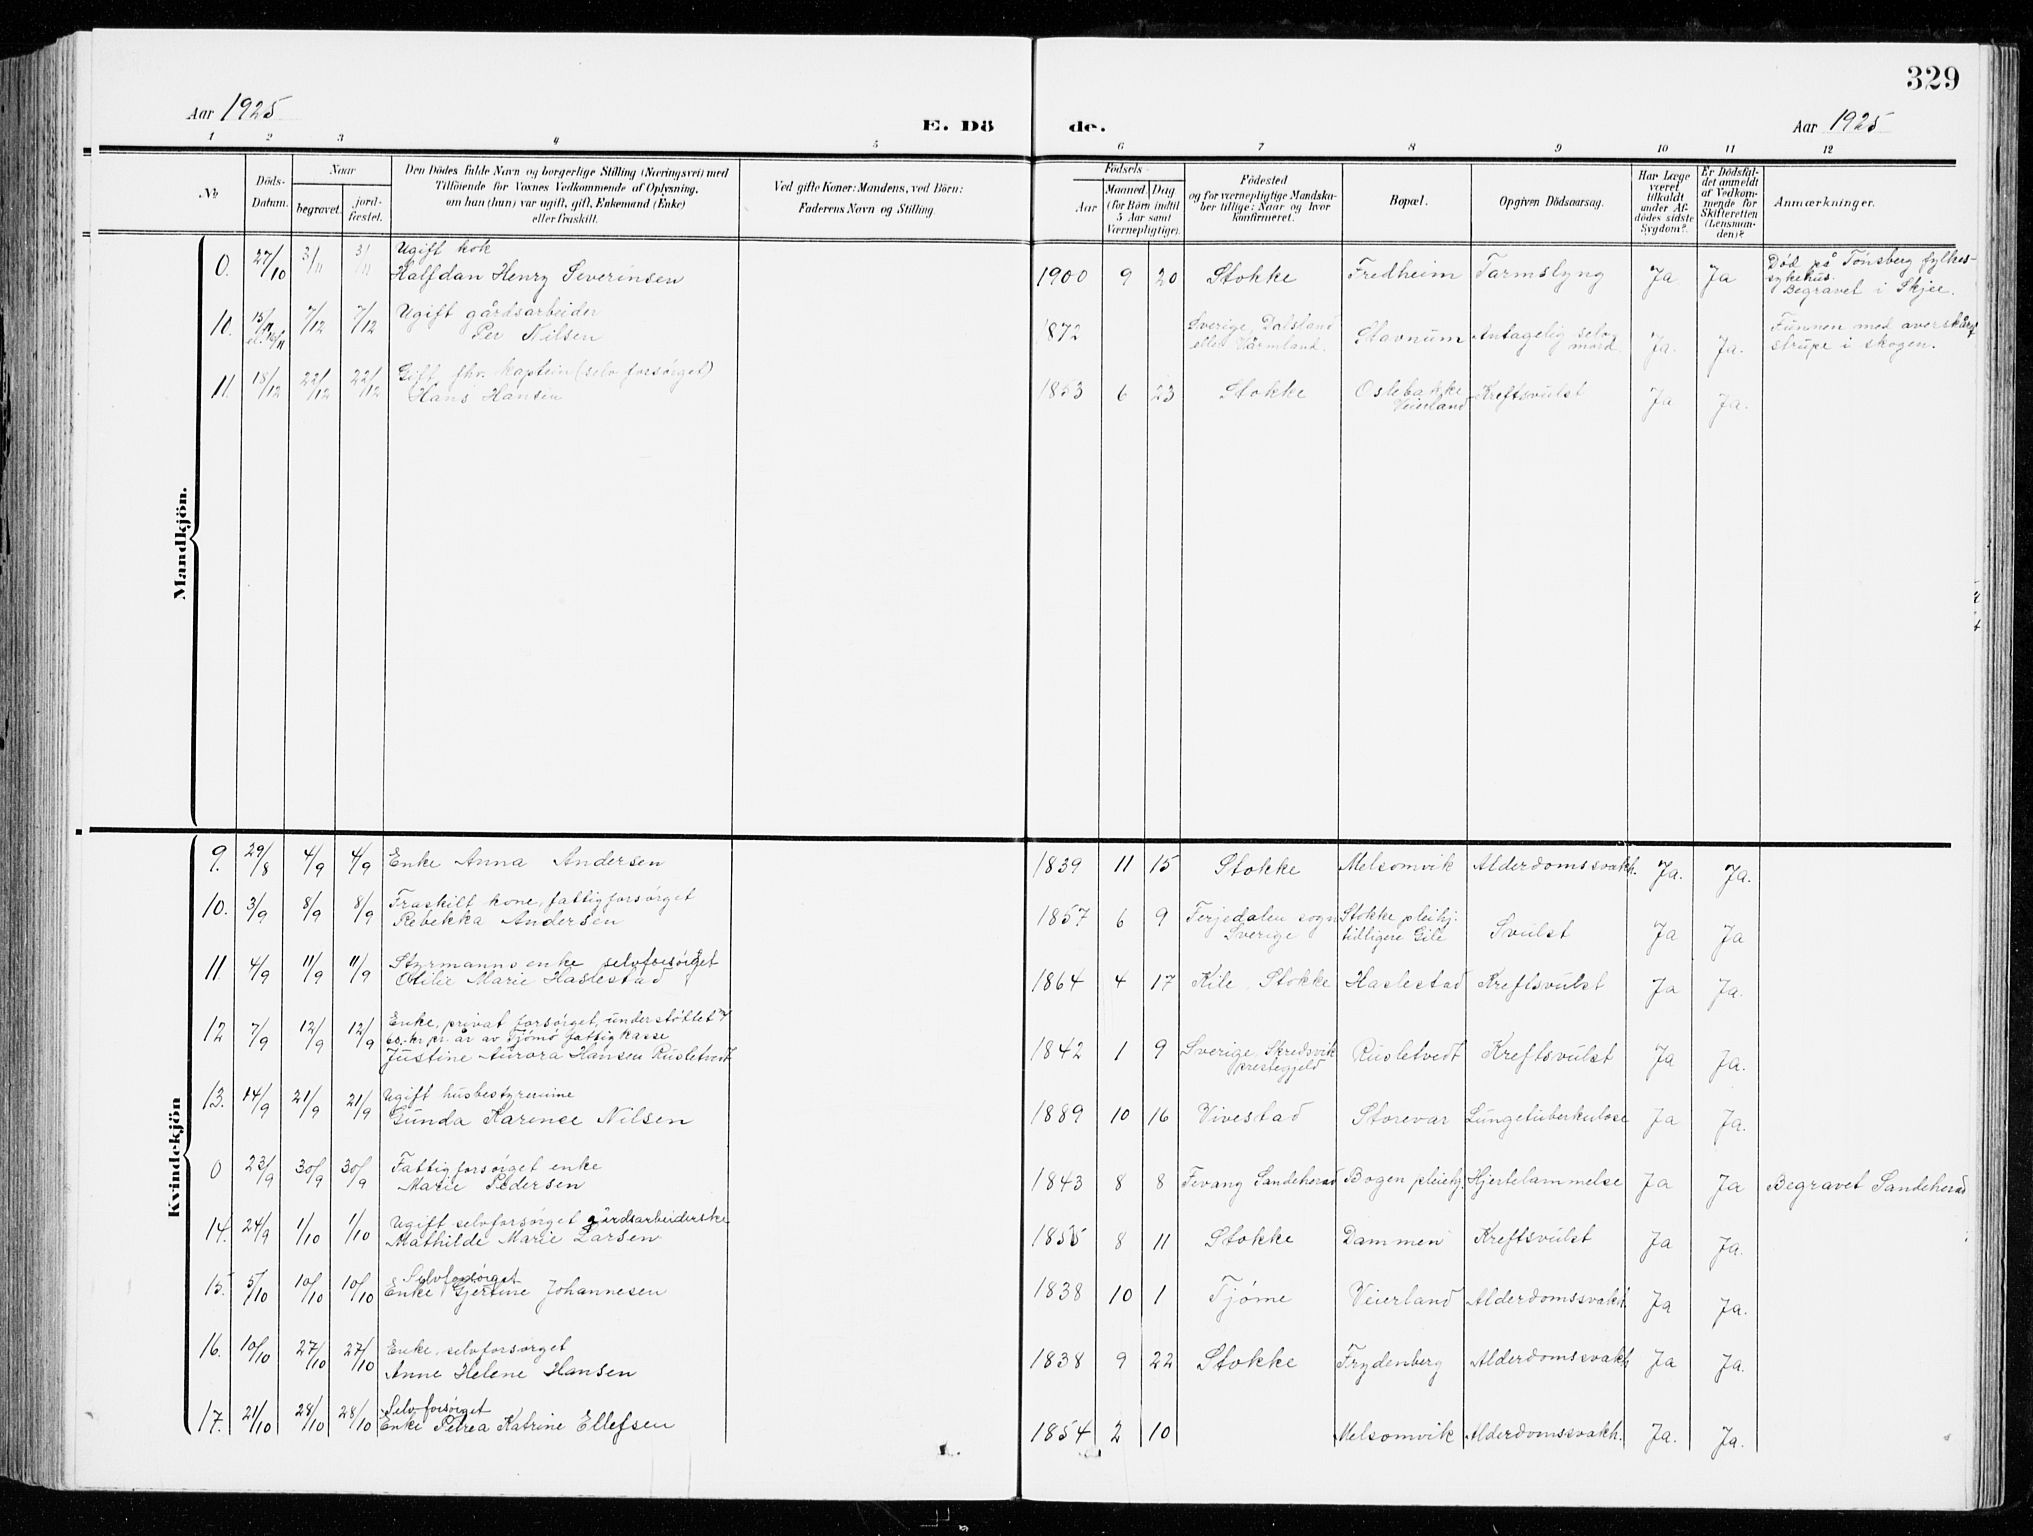 329
Aar 1925
E. Dö de.
Aar 1925
1 2 3 4 5 6 7 8 9 10 11 12
No.
Döds-
Datum.
Naar
begravet.
jord-
fæstet.
Den Dödes fulde Navn og borgerlige Stilling (Næringsvei) med
Tilföiende for Voxnes Vedkommende af Oplysning,
om han (hun) var ugift, gift, Enkemand (Enke)
eller fraskilt.
Ved gifte Koner: Mandens, ved Börn:
Faderens Navn og Stilling.
Födsels-
Aar
Maaned. Dag
(for Börn indtil
5 Aar samt
Værnepligtige).
Födested
og for værnepligtige Mandska-
ber tillige: Naar og hvor
konfirmeret.
Bopæl.
Opgiven Dödsaarsag.
Har Læge
været
tilkaldt
under Af-
dödes sidste
Sygdom?
Er Dödsfal-
det anmeldt
af Vedkom-
mende for
Skifteretten
(Lensman-
den)?
Anmærkninger.
Mandkjön.
0. 27/10 3/11 3/11 Ugift kok
Halfdan Henry Severinsen
1900 9 20 Stokke Fredheim Tarmslyng Ja Ja
Död på Tönsberg fylkes-
sykehus.
Begravet i Skjee.
10. 15/11 el. 16/11 7/12 7/12 Ugift gårdsarbeider
Per Nilsen
1872 Sverige, Dalsland
eller Värmland.
Stavnum Antagelig selv-
mord. Ja. Ja.
Funnen med averskåret
strupe i skogen.
11. 18/12 22/12 22/12 Gift fhv. kaptein (selvforsørget)
Hans Hansen
1853 6 23 Stokke Oslebakke
Veierland Kreftsvulst Ja Ja.
Kvindekjön
9. 29/8 4/9 4/9 Enke Anna Andersen
1839 11 15 Stokke Melsomvik Alderdomssvakh. Ja. Ja.
10. 3/9 8/9 8/9 Fraskilt kone, fattigforsørget
Rebekka Andersen
1857 6 9 Terjedalen sogn
Sverige
Stokke pleihj.
tidligere Gile
Svulst Ja Ja
11. 4/9 11/9 11/9 Styrmannsenke selvforsørget
Otilie Marie Haslestad
1864 4 17 Kile, Stokke Haslestad Kreftsvulst Ja Ja.
12 7/9 12/9 12/9 Enke, privat forsørget, understøttet
60.-kr pr. år av Tjömö fattigkasse
Justine Aurora Hansen Rusletvedt
1842 1 9 Sverige, Skredsvik
prestegjeld
Rusletvedt Kreftsvulst Ja Ja.
13. 14/9 21/9 21/9 Ugift husbestyrerinne
Gunda Karense Nilsen
1889 10 16 Vivestad Storevar Lungetuberkulose Ja Ja.
0 23/9 30/9 30/9 Fattigforsørget enke
Marie Pedersen
1843 8 8 Fevang Sandeherad Bogen pleiehj. Hjertelammelse Ja Ja Begravet Sandeherad
14. 24/9 1/10 1/10 Ugift selvforsørget gårdsarbeiderske
Mathilde Marie Larsen
1855 8 11 Stokke Dammen Kreftsvulst Ja Ja.
15. 5/10 10/10 10/10 Selvforsørget
Enke Gjertine Johannesen
1838 10 1 Tjøme Veierland Alderdomssvakh. Ja Ja.
16. 10/10 27/10 27/10 Enke, selvforsørget
Anne Helene Hansen
1838 9 22 Stokke Frydenberg Alderdomssvakh Ja Ja.
17. 21/10 28/10 28/10 Selvforsørget
Enke Petrea Katrine Ellefsen
1854 2 10 Melsomvik Alderdomssvakh. Ja. Ja.